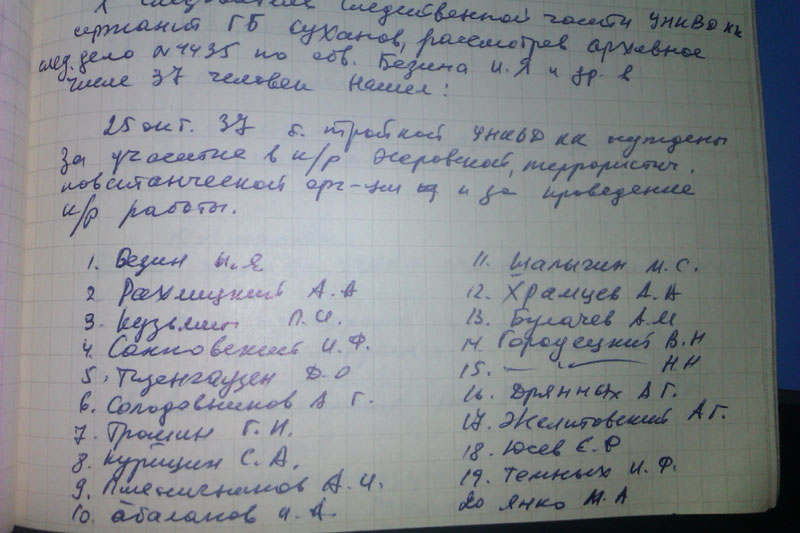 следственной части УНКВД КК
сержант ГБ Суханов, рассмотрев архивное
след. дело № 4435 по обв. Безина И.Я и др. в
числе 37 человек нашел:
25 окт. 37 б. тройкой УНКВД КК осуждены
За участие в к/р эсеровской, террористич.
повстанческой орг-ции и за проведение
к/р работы.
1. Безин И.Я
2 Рахмицкий А.А
3. Кузьмин П.И.
4. Сонновский И.Ф.
5. Тизенгаузен Д.О
6. Солодовников А Г.
7. Тромин Г.И.
8. Курицин С.А.
9. Пшеничников А.И.
10. Абаланов И.А.
11. Шалыгин М.С.
12. Храмцев А.А
13. Бугачев А.М
14. Городецкий В.Н
15. — " — НН
16. Дрянных А Г.
17. Желитовский А.Г.
18. Юсев Е.Р
19. Темных И.Ф.
20 Янко М.А